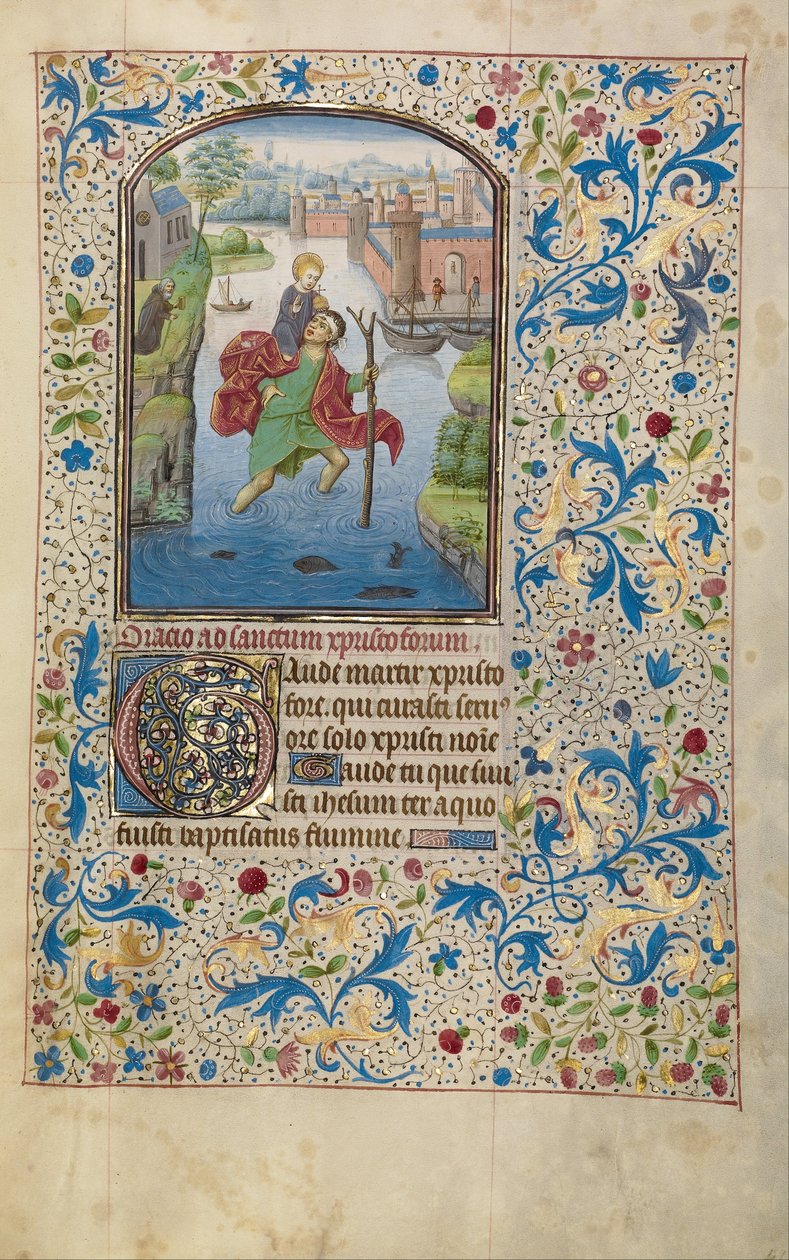 Oracio ad sanctum xpristoforum.
Gaude martir xpristo
fore. qui curasti seruꝰ
ore solo xpristi noīe
Gaude tu que sui
sti ihesum ter a quo
fuisti baptisatus flumine